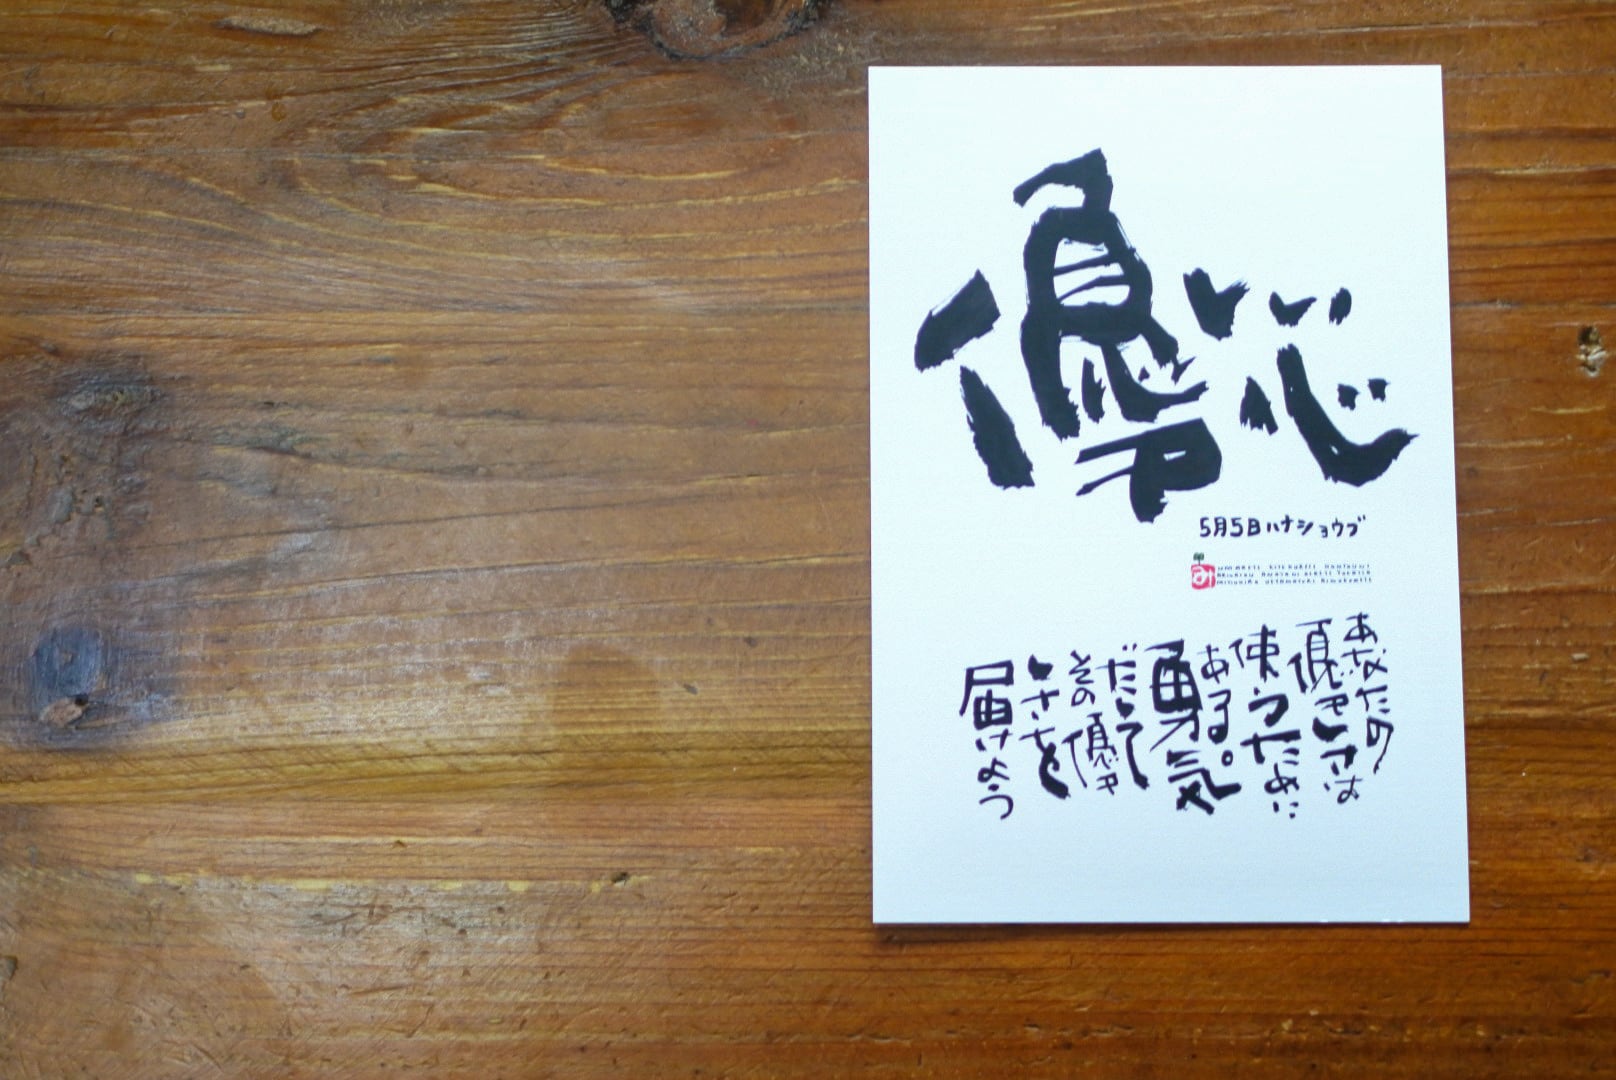 優しい心
5月5日ハナショウブ
み
あなたの
優しさは
使うために
ある。
勇気
だして
その優
しさを
届けよう